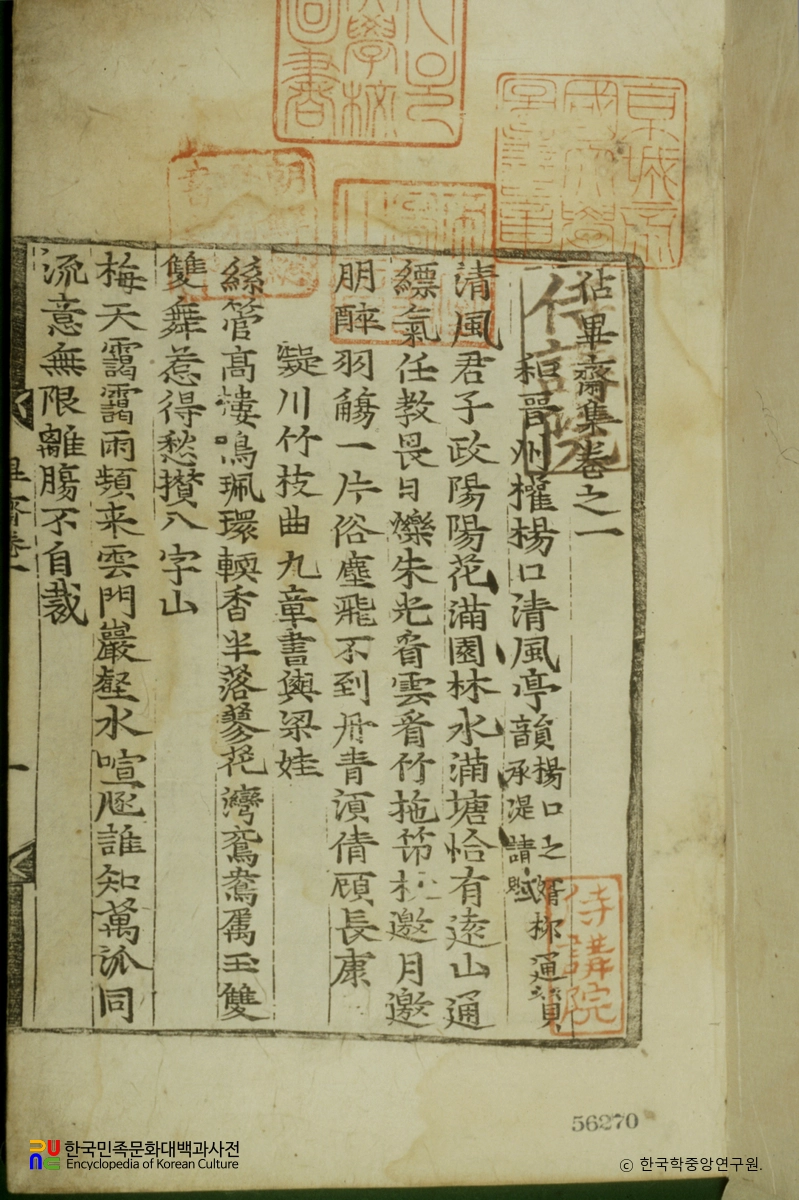 佔畢齋集卷之一
和晉州權楊口清風亭韻楊口之壻柳通贊承湜請賦
清風君子政陽陽花滿園林水滿塘恰有遠山通
縹氣任教畏日爍朱光看雲看竹拖筇杖邀月邀
朋醉羽觴一片俗塵飛不到丹青須倩顧長康
凝川竹枝曲九章書與梁娃
絲管高樓鳴珮環輭香半落蓼花灣鴛鴦屬玉雙
雙舞惹得愁攢八字山
梅天靄靄雨頻来雲門巖壑水喧豗誰知萬派同
流意無限離膓不自裁
畢齋卷一
一
侍講院
京城帝
56270
한국민족문화대백과사전
Encyclopedia of Korean Culture
© 한국학중앙연구원.